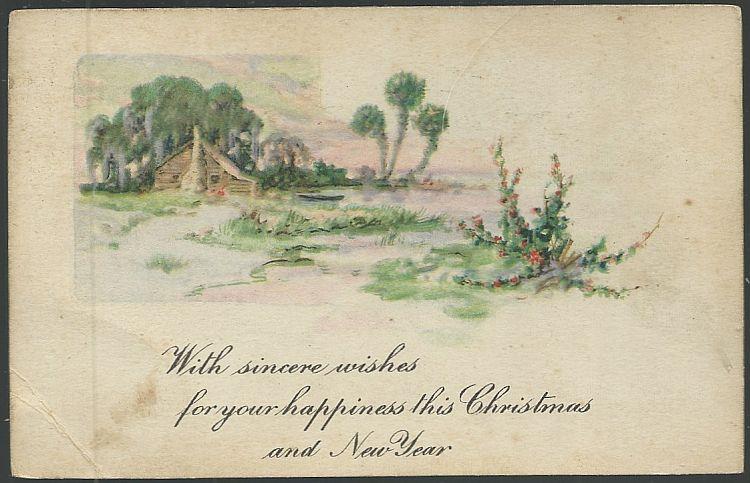 With sincere wishes
for your happiness this Christmas
and New Year